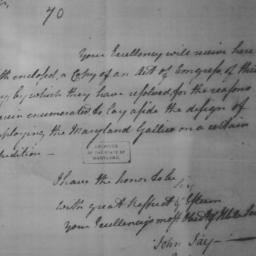 70
Your Excellency will receive here
th enclosed, a Copy of an Act of Congress, of this
by which they have resolved, for the reasons
rein enumerated to lay aside the design of
ploying the Maryland Gallies on a certain
pedition —
ARCHIVES
OF THE STATE OF
MARYLAND.
I have the honor to be
with great Respect & Esteem
your Excellency's most
John Jay